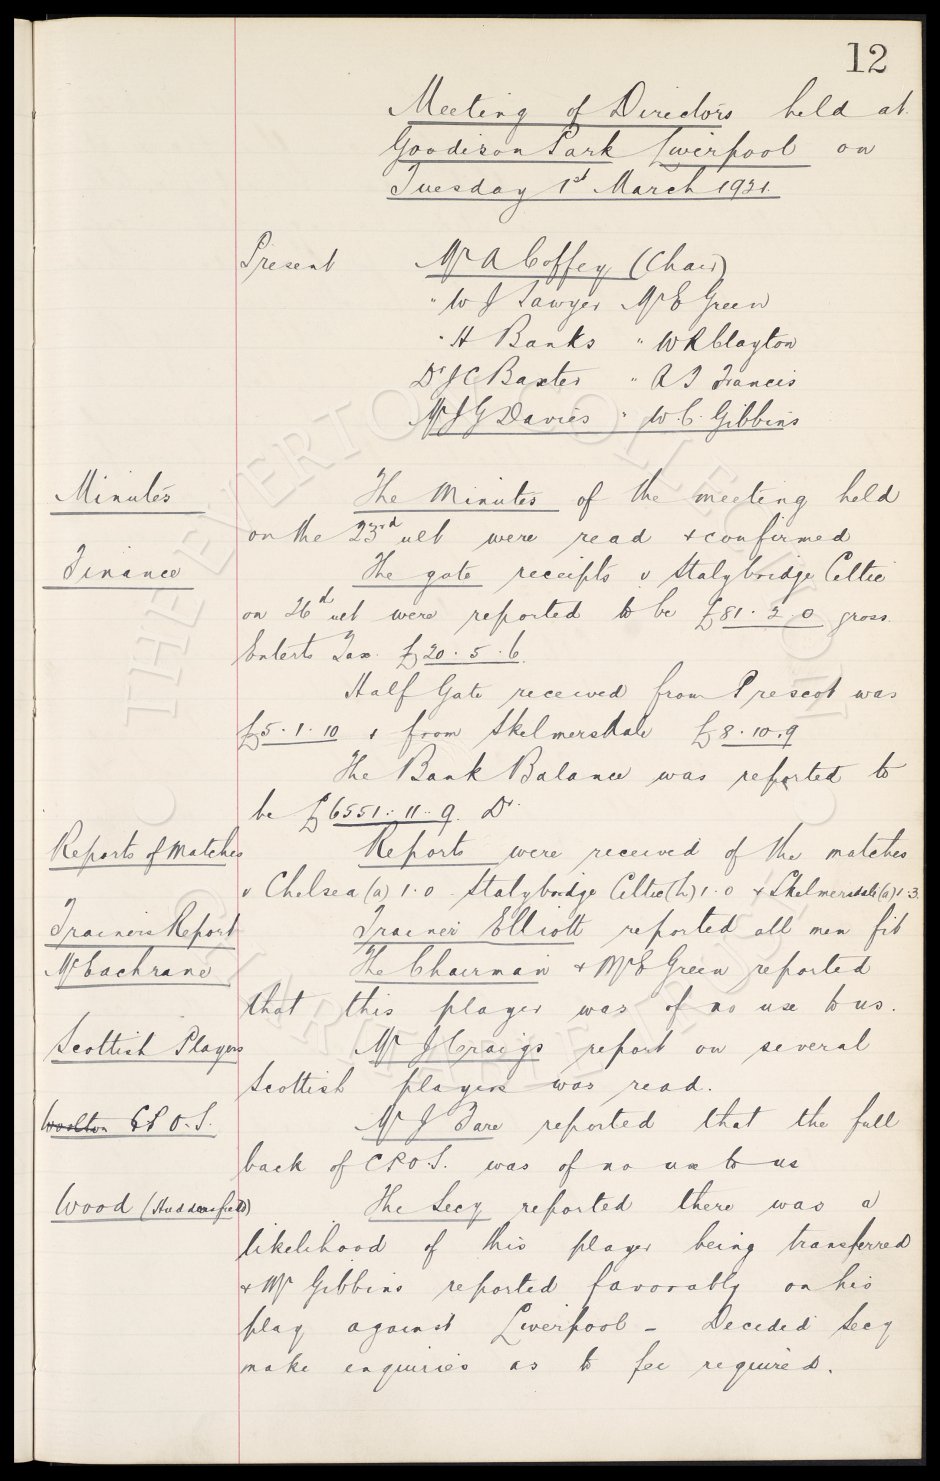 12
Meeting of Directors held at
Goodison Park Liverpool on
Tuesday 1st March 1921.
Present Mr A Coffey (Chair)
" W J Sawyer Mr E Green
" H Banks " W R Clayton
Dr J C Baxter " A T Francis
Mr J G Davies " W. C. Gibbins
Minutes The Minutes of the meeting held
on the 23rd ult were read & confirmed
Finance The gate receipts v Stalybridge Celtic
on 26d ult were reported to be £81. 2 0 gross.
Enterts Tax. £20. 5. 6.
Half Gate received from Prescot was
£5. 1. 10 & from Skelmersdale £8. 10. 9
The Bank Balance was reported to
be £6551. 11. 9. Dr.
Reports of Matches Reports were received of the matches
v Chelsea (a) 1.0 Stalybridge Celtic (h) 1.0 & Skelmersdale (a) 1.3
Trainers Report Trainer Elliott reported all men fit
McEachrane The Chairman & Mr E Green reported
that this player was of no use to us.
Scottish Players Mr J Craigs report on several
Scottish players was read.
Woolton C P O. S. Mr J Fare reported that the full
back of C P O S. was of no use to us
Wood (Huddersfield) The Secy reported there was a
likelihood of this player being transferred
& Mr Gibbins reported favorably on his
play against Liverpool - Decided Secy
make enquiries as to fee required.
THE EVERTON COLLECTION CHARITABLE TRUST